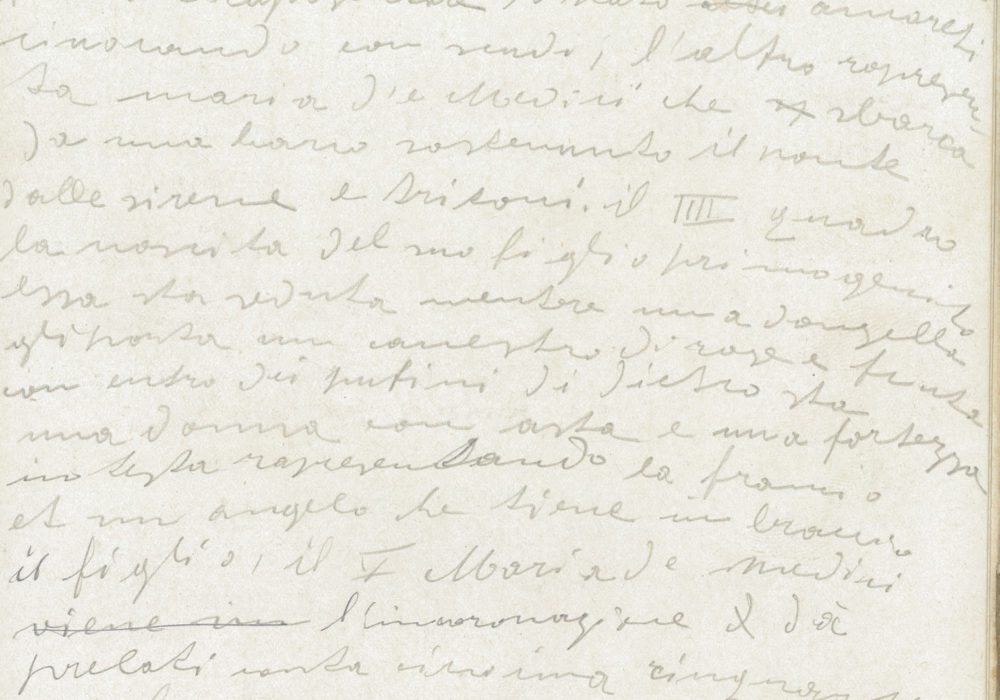 amoreti
con scudi, l'altro rapresen-
ta maria d'e Medici che sbarca
Da una barca sostenuto il ponte
dalle sirene e tritoni. il IIII quadro
la nascita del suo figlio primogenito
essa sta seduta mentre una dongella
gli porta un canestro di rose e fruta
con entro dei putini di dietro sta
una donna con asta e una fortezza
in testa rapresentando la francia
et un angelo che tiene in bracio
il figlio, il V Maria de medici
viene in l'incoronazione dà
prelati conta cinquan